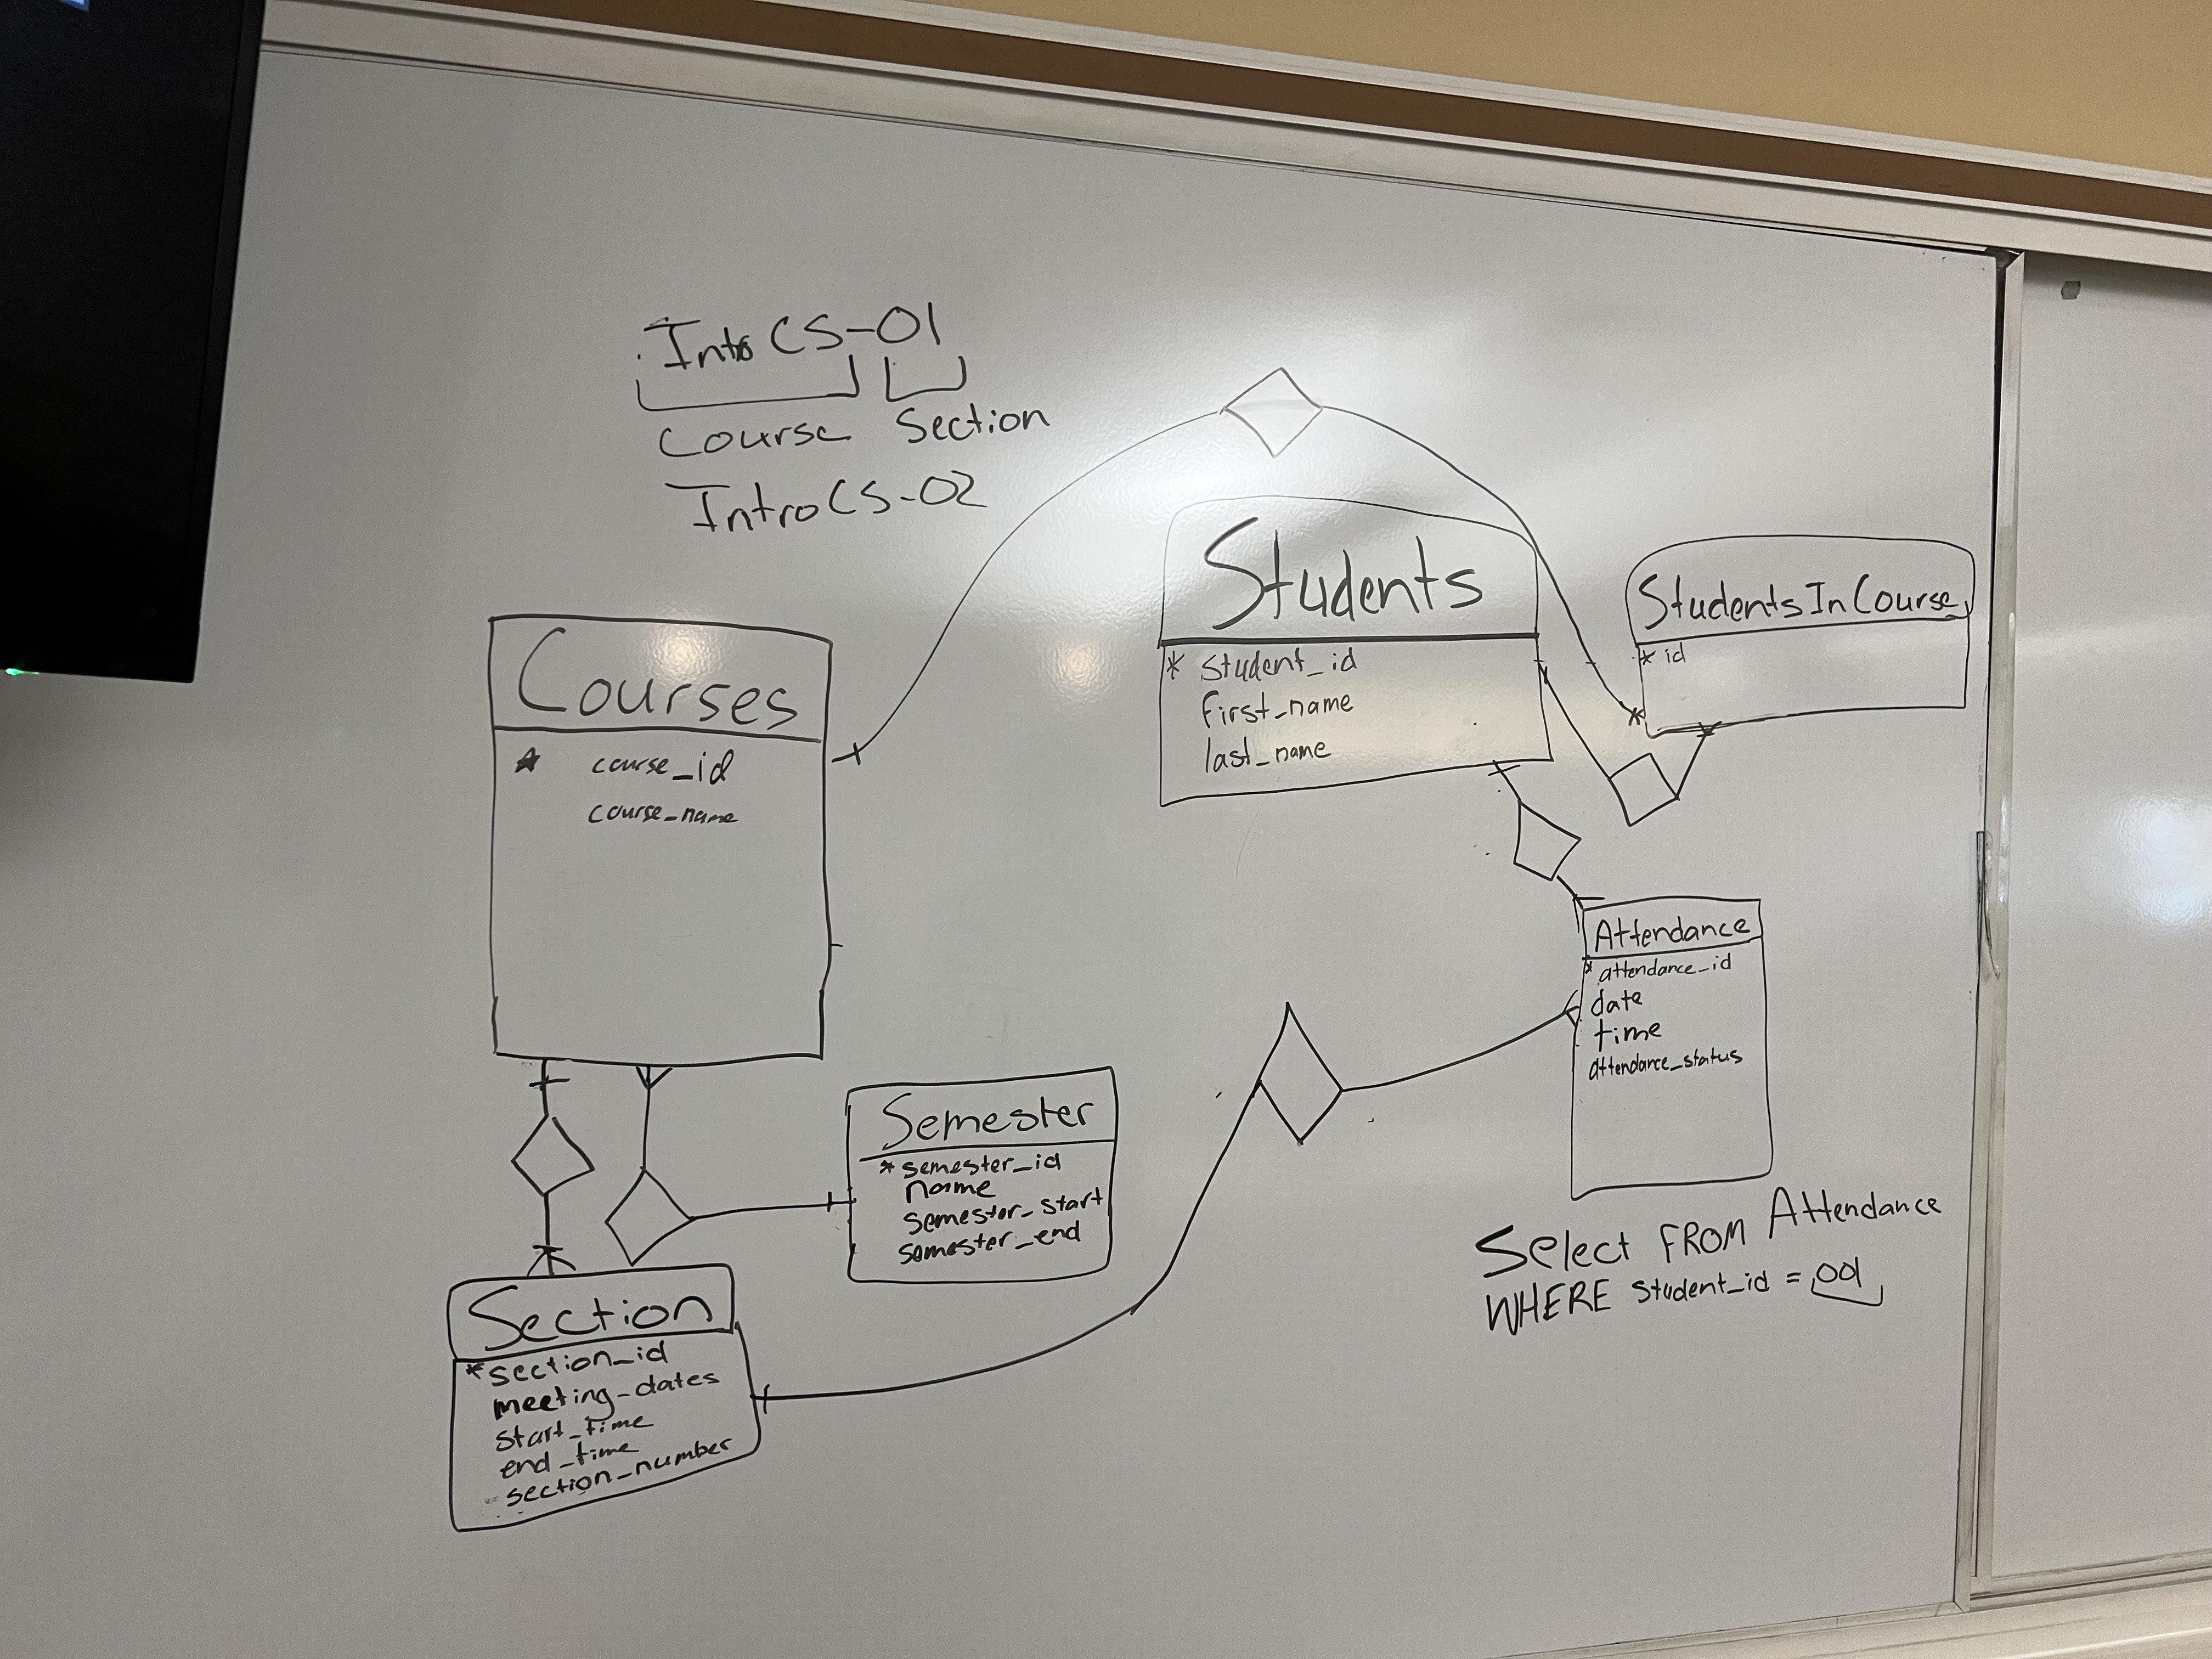 Intro CS-01
Course Section
Intro CS-02
Courses
* course_id
course_name
Students
* student_id
first_name
last_name
StudentsInCourse
* id
Attendance
* attendance_id
date
time
attendance_status
Semester
* semester_id
name
semester_start
semester_end
Section
* section_id
meeting_dates
start_time
end_time
section_number
Select FROM Attendance
WHERE student_id = 001